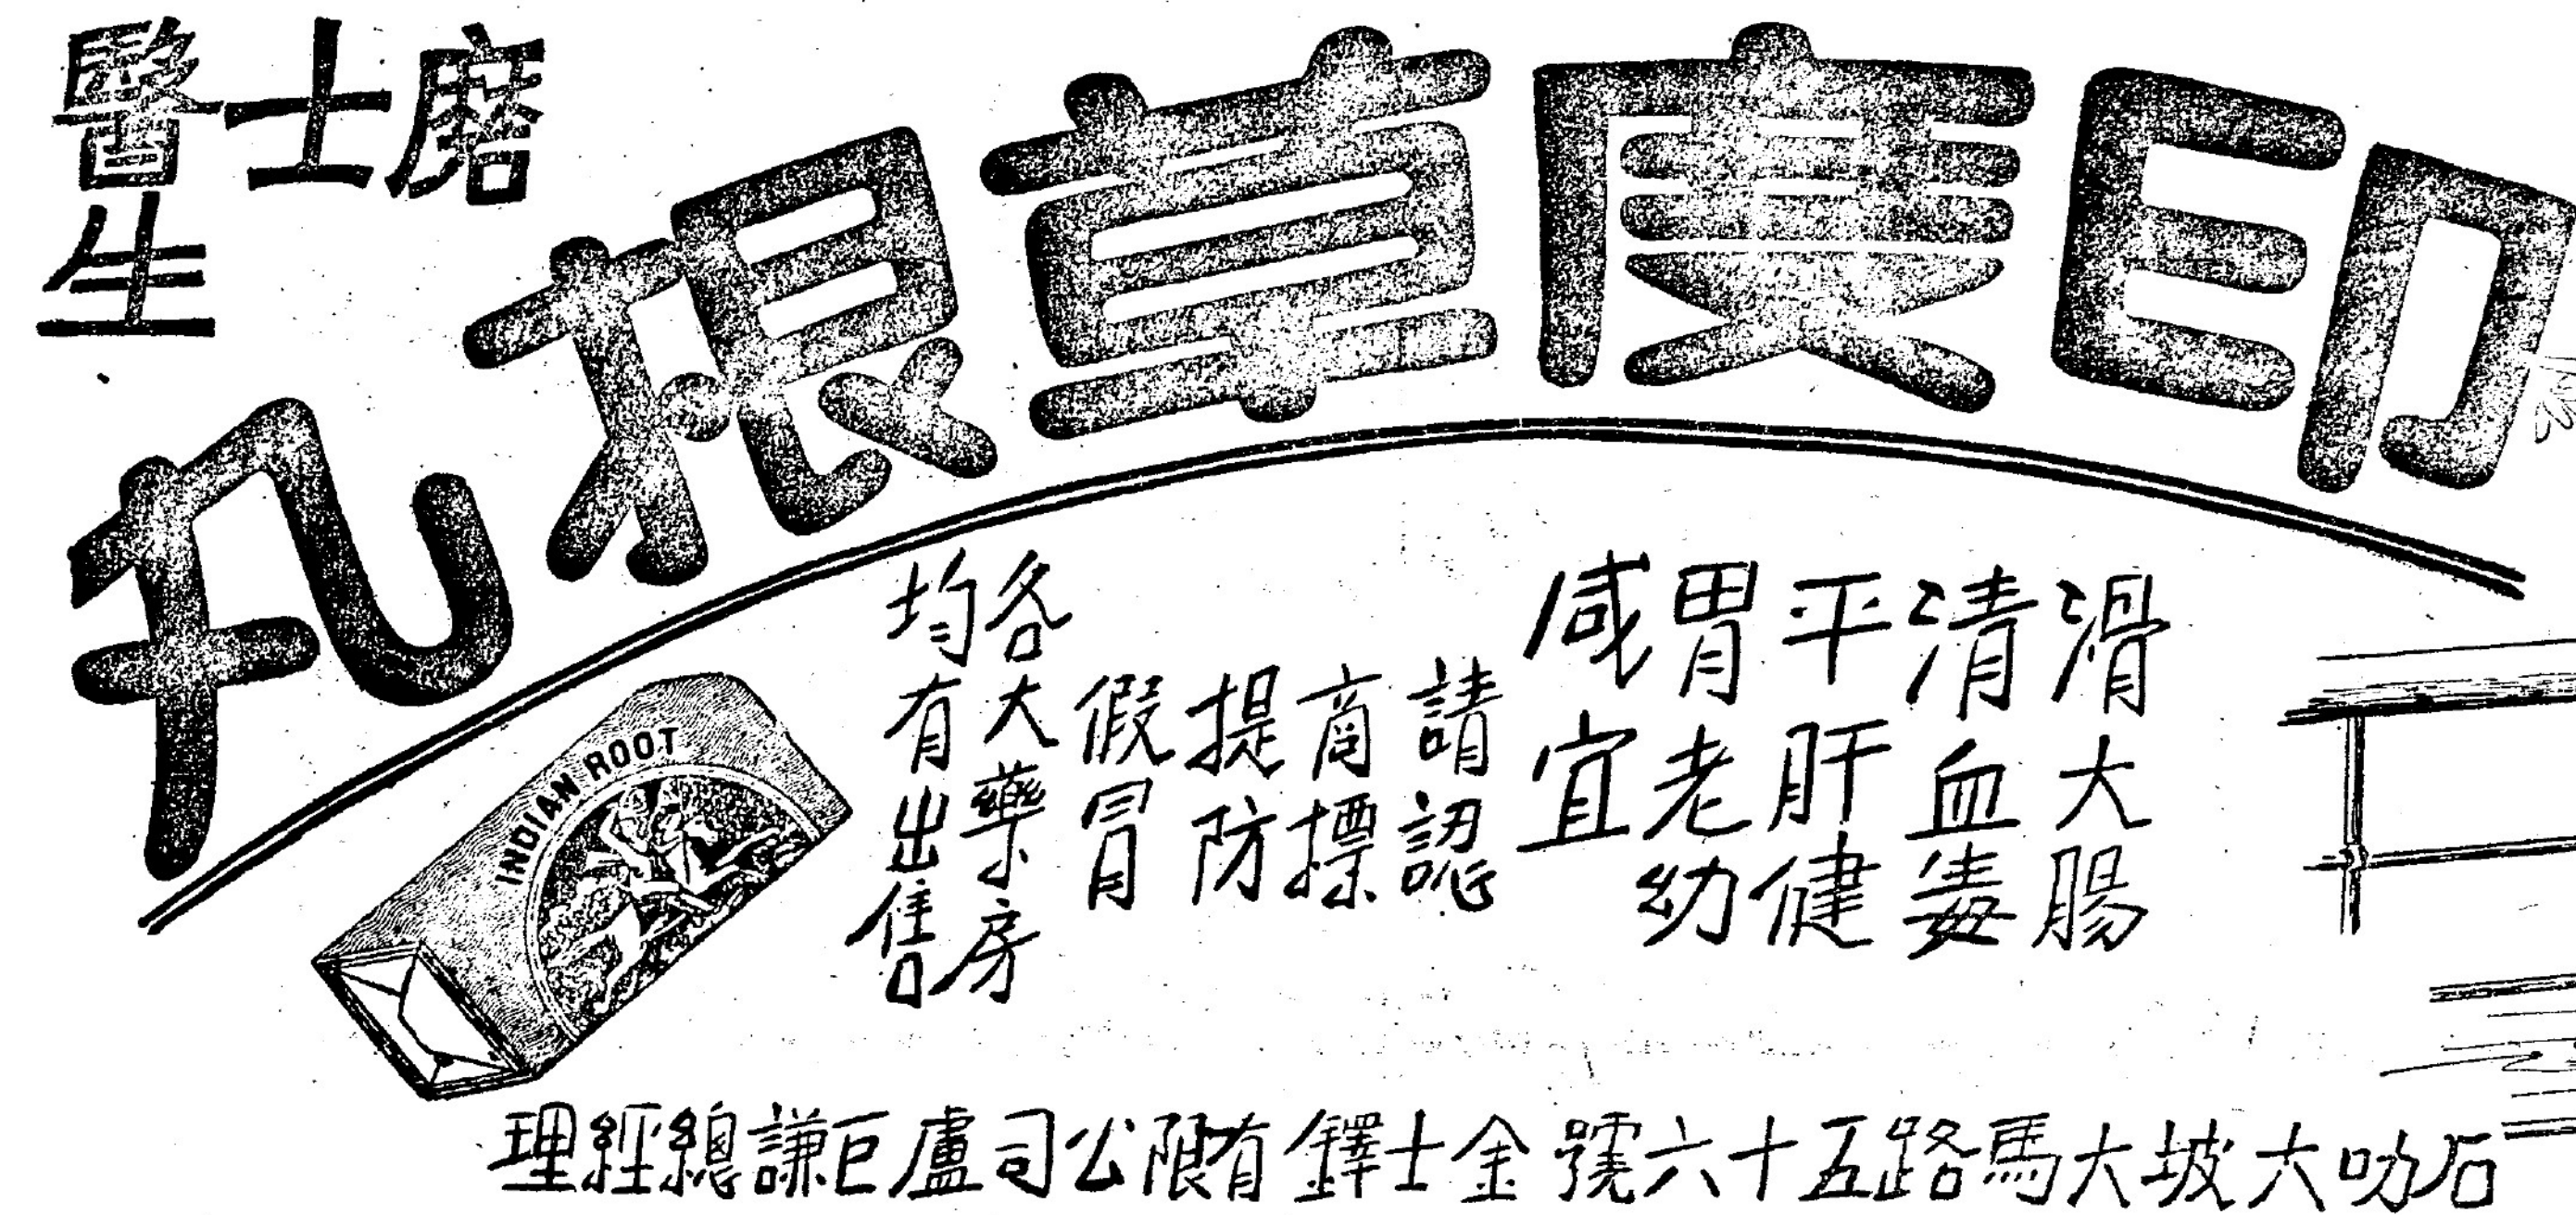 磨士醫生
印度草根丸
滑大腸
清血毒
平肝健
胃老幼
咸宜
請認
商標
提防
假冒
各大藥房
均有出售
INDIAN ROOT
石叻大坡大馬路五十六號金士鐸有限公司盧巨謙總經理